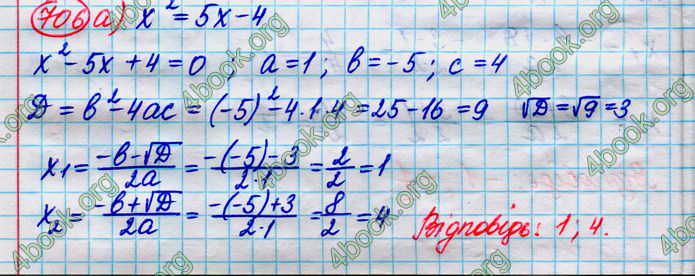 706 а) x² = 5x - 4
x² - 5x + 4 = 0 ; a = 1 ; в = -5 ; c = 4
Д = в² - 4ac = (-5)² - 4·1·4 = 25 - 16 = 9 √Д = √9 = 3
x₁ = (-в - √Д)/(2a) = (-(-5) - 3)/(2·1) = 2/2 = 1
x₂ = (-в + √Д)/(2a) = (-(-5) + 3)/(2·1) = 8/2 = 4
Відповідь: 1 ; 4.
4book.org